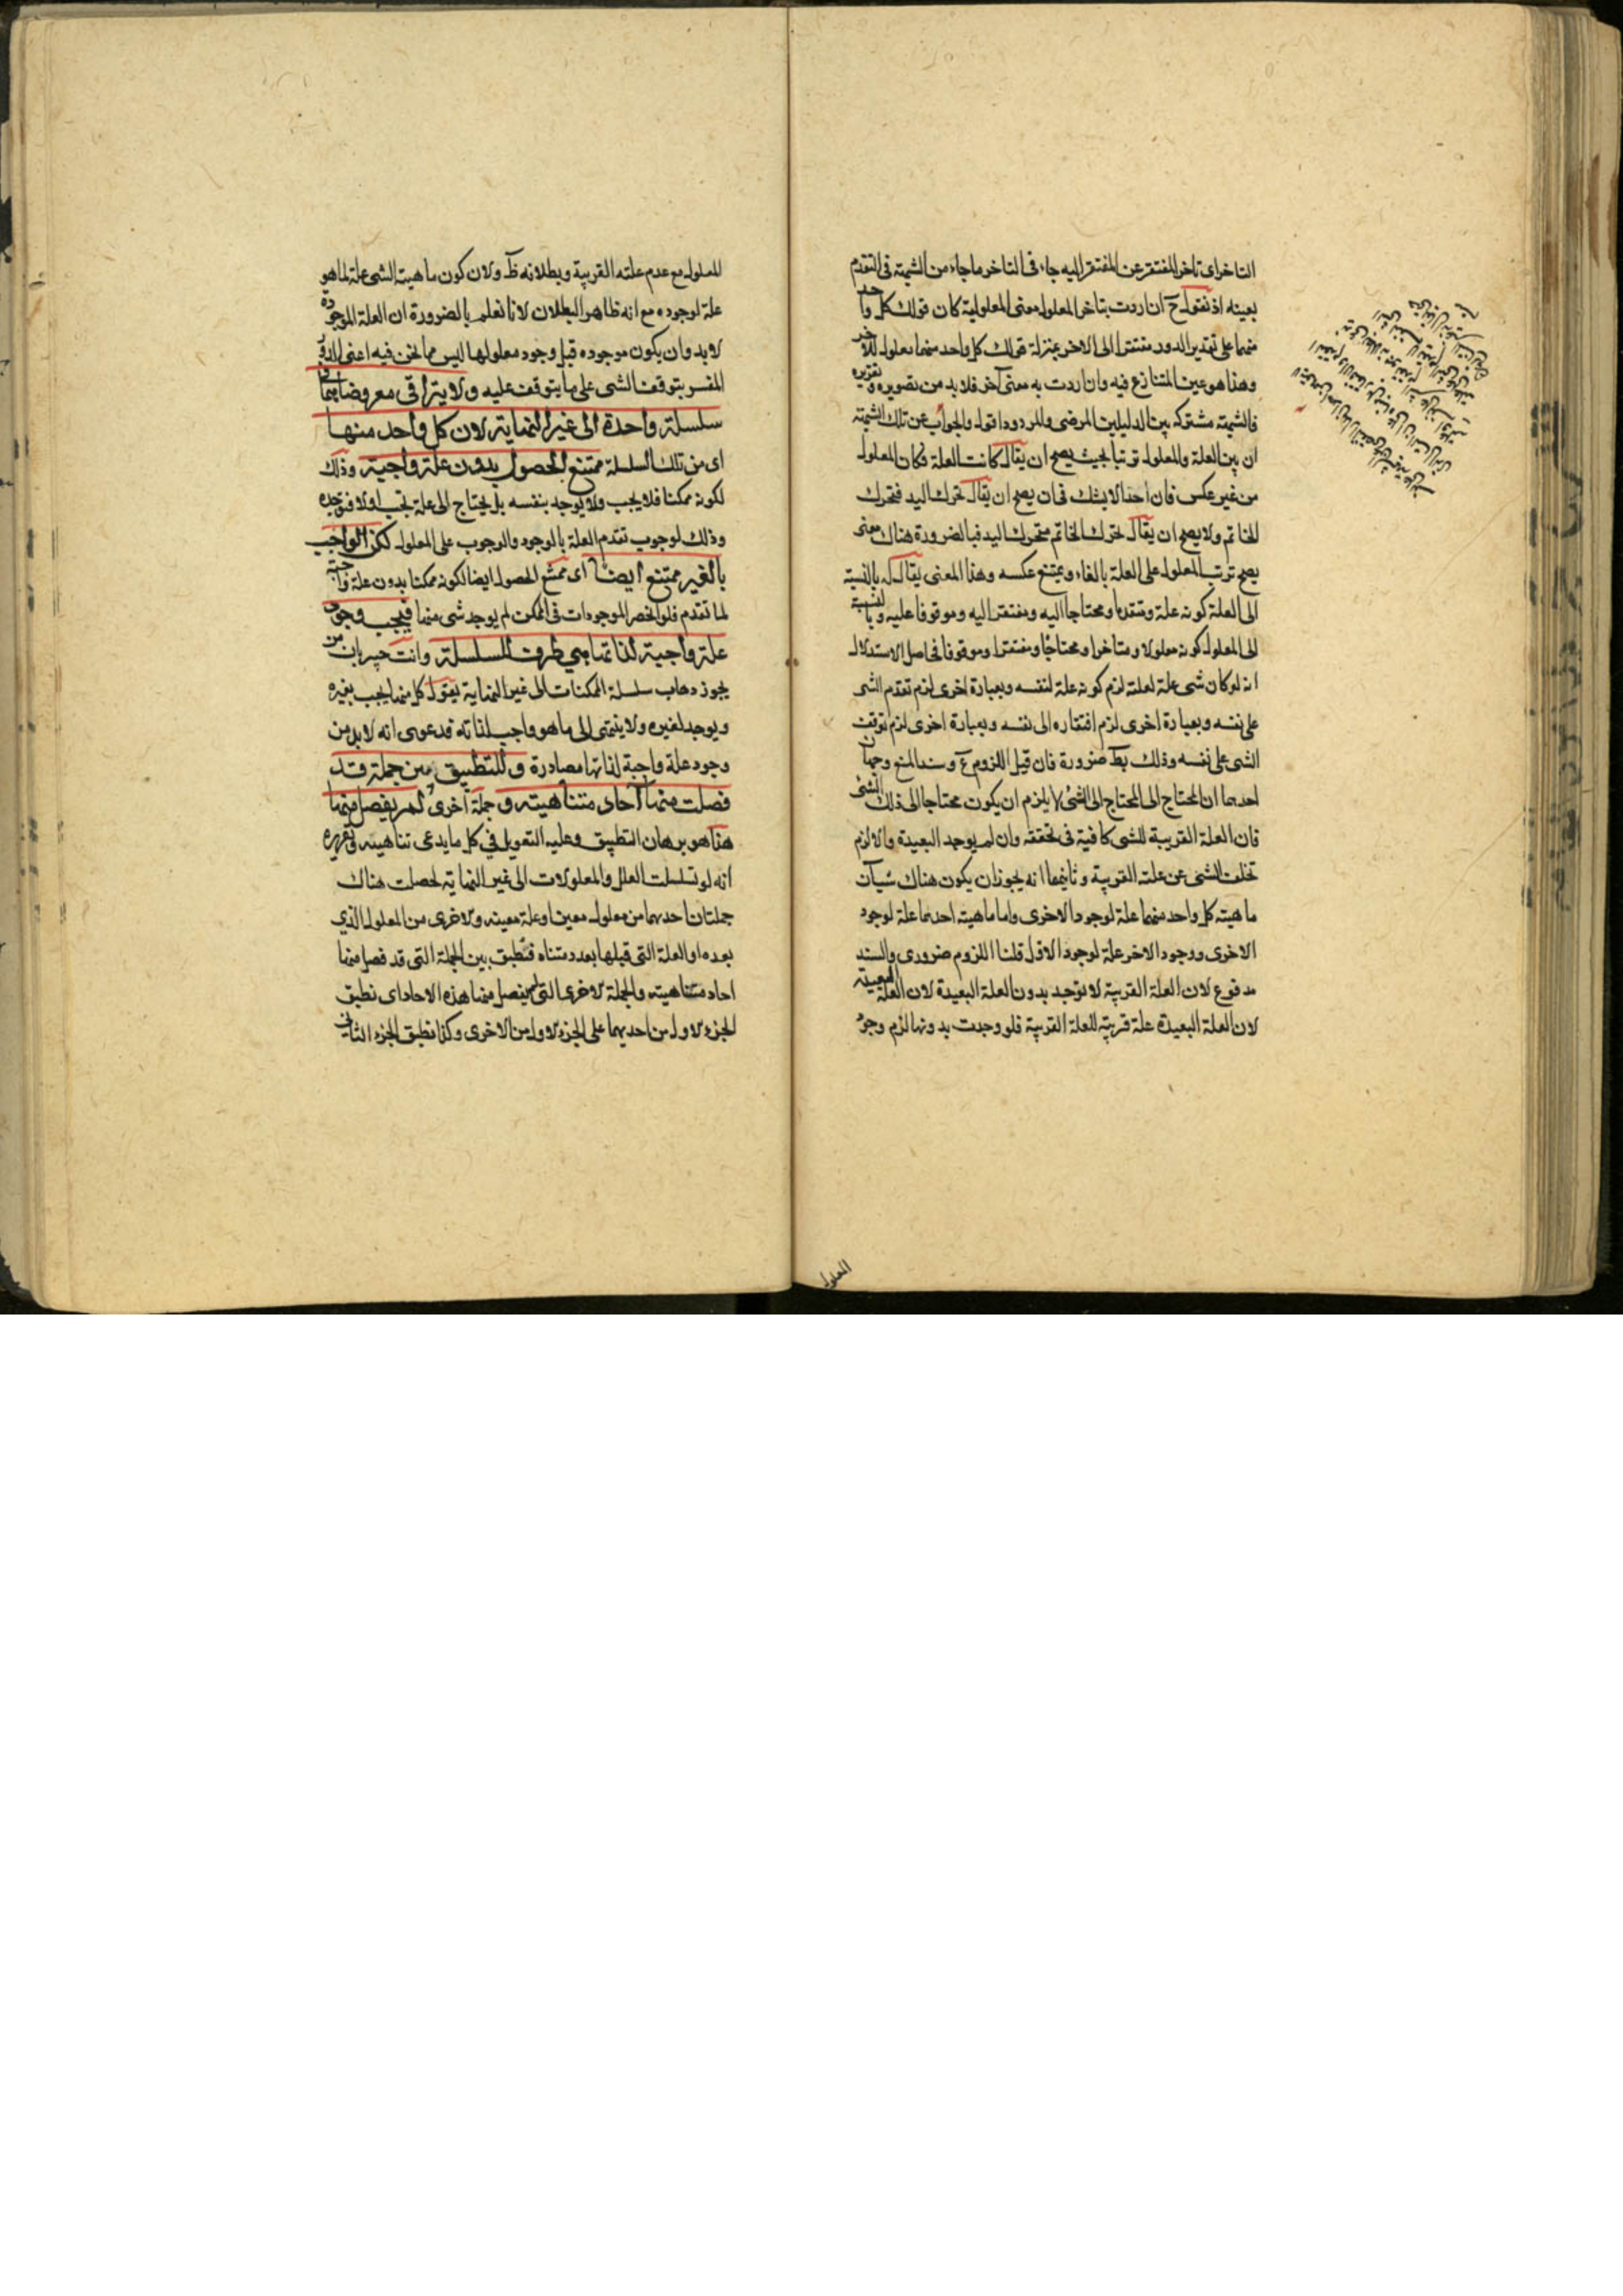 التاخر اى تاخر المفتقر عن المفتقر اليه جاء فى التاخر ما جاء من الشبهة فى التقدم
بعينه اذ نقول ح ان اردت بتاخر المعلول معنى المعلولية كان قولك كل واحد
منهما على تقدير الدور مفتقرا الى الاخر بمنزلة قولك كل واحد منهما معلول للاخر
وهذا هو عين المتنازع فيه وان اردت به معنى آخر فلا بد من تصويره وتقريره
فالشبهة مشتركه بين الدليلين المرضى والمردود اقول والجواب عن تلك الشبهة
ان بين العلة والمعلول ترتبا بحيث يصح ان يقال كانت العلة فكان المعلول
من غير عكس فان احدا لا يشك فى ان يصح ان يقال تحرك اليد فتحرك
الخاتم ولا يصح ان يقال تحرك الخاتم فتحرك اليد فبالضرورة هناك معنى
يصح ترتب المعلول على العلة بالفاء ويمتنع عكسه وهذا المعنى يقال له بالنسبة
الى العلة كونه علة ومتقدما ومحتاجا اليه ومفتقرا اليه وموقوفا عليه وبالنسبة
الى المعلول كونه معلولا ومتاخرا ومحتاجا ومفتقرا وموقوفا فحاصل الاستدلال
انه لو كان شى علة لعلته لزم كونه علة لنفسه وبعبارة اخرى لزم تقدم الشى
على نفسه وبعبارة اخرى لزم افتقاره الى نفسه وبعبارة اخرى لزم توقف
الشى على نفسه وذلك بط ضرورة فان قيل اللزوم م وسند المنع وجهان
احدهما ان المحتاج الى المحتاج الى الشئ لا يلزم ان يكون محتاجا الى ذلك الشئ
فان العلة القريبة للشى كافية فى تحققه وان لم يوجد البعيدة والا لزم
تخلف الشى عن علته القريبة وثانيهما انه يجوز ان يكون هناك شيآن
ماهية كل واحد منهما علة لوجود الاخرى واما ماهيته احدهما علة لوجود
الاخرى ووجود الاخر علة لوجود الاول قلنا اللزوم ضرورى والسند
مدفوع لان العلة القريبة لا توجد بدون العلة البعيدة لان العلة البعيدة
لان العلة البعيدة علة قريبة للعلة القريبة فلو وجدت بدونها لزم وجود
المعلول
المعلول مع عدم علته القريبة وبطلانه ظ ولان كون ماهية الشى علة لما هو
علة لوجوده مع انه ظاهر البطلان لانا نعلم بالضرورة ان العلة الموجودة
لا بد وان يكون موجوده قبل وجود معلولها ليس مما نحن فيه اعنى الدور
المفسر بتوقف الشى على ما يتوقف عليه ولا يتراقى معروضاهما فى
سلسلة واحدة الى غير النهاية لان كل واحد منها
اى من تلك السلسلة ممتنع الحصول بدون علة واجبة وذلك
لكونه ممكنا فلا يجب ولا يوجد بنفسه بل يحتاج الى علة تجب اولا فتوجده
وذلك لوجوب تقدم العلة بالوجود والوجوب على المعلول لكن الواجب
بالغير ممتنع ايضا اى ممتنع الحصول ايضا لكونه ممكنا بدون علة واجبة
لما تقدم فلو انحصر الموجودات فى الممكن لم يوجد شى منها فيجب وجود
علة واجبة لذاتها هي طرف للسلسلة وانت خبير بان من
يجوز ذهاب سلسلة الممكنات الى غير النهاية يقول كل منها يجب بغيره
ويوجد لغيره ولا ينتهى الى ما هو واجب لذاته فدعوى انه لا بد من
وجود علة واجبة لذاتها مصادرة وللتطبيق بين جملة قد
فصلت منها آحاد متناهية و جملة اخرى لم يفصل منها
هذا هو برهان التطبيق وعليه التعويل في كل ما يدعى تناهيه وتقريره
انه لو تسلسلت العلل والمعلولات الى غير النهاية لحصلت هناك
جملتان احديهما من معلول معين او علة معينه والاخرى من المعلول الذي
بعده او العلة التى قبلها بعدد متناه فنطبق بين الجملة التى قد فصل منها
احاد متناهية والجملة الاخرى التى لم يفصل منها هذه الاحاد اى نطبق
الجزء الاول من احديهما على الجزء الاول من الاخرى وكذا نطبق الجزء الثانى